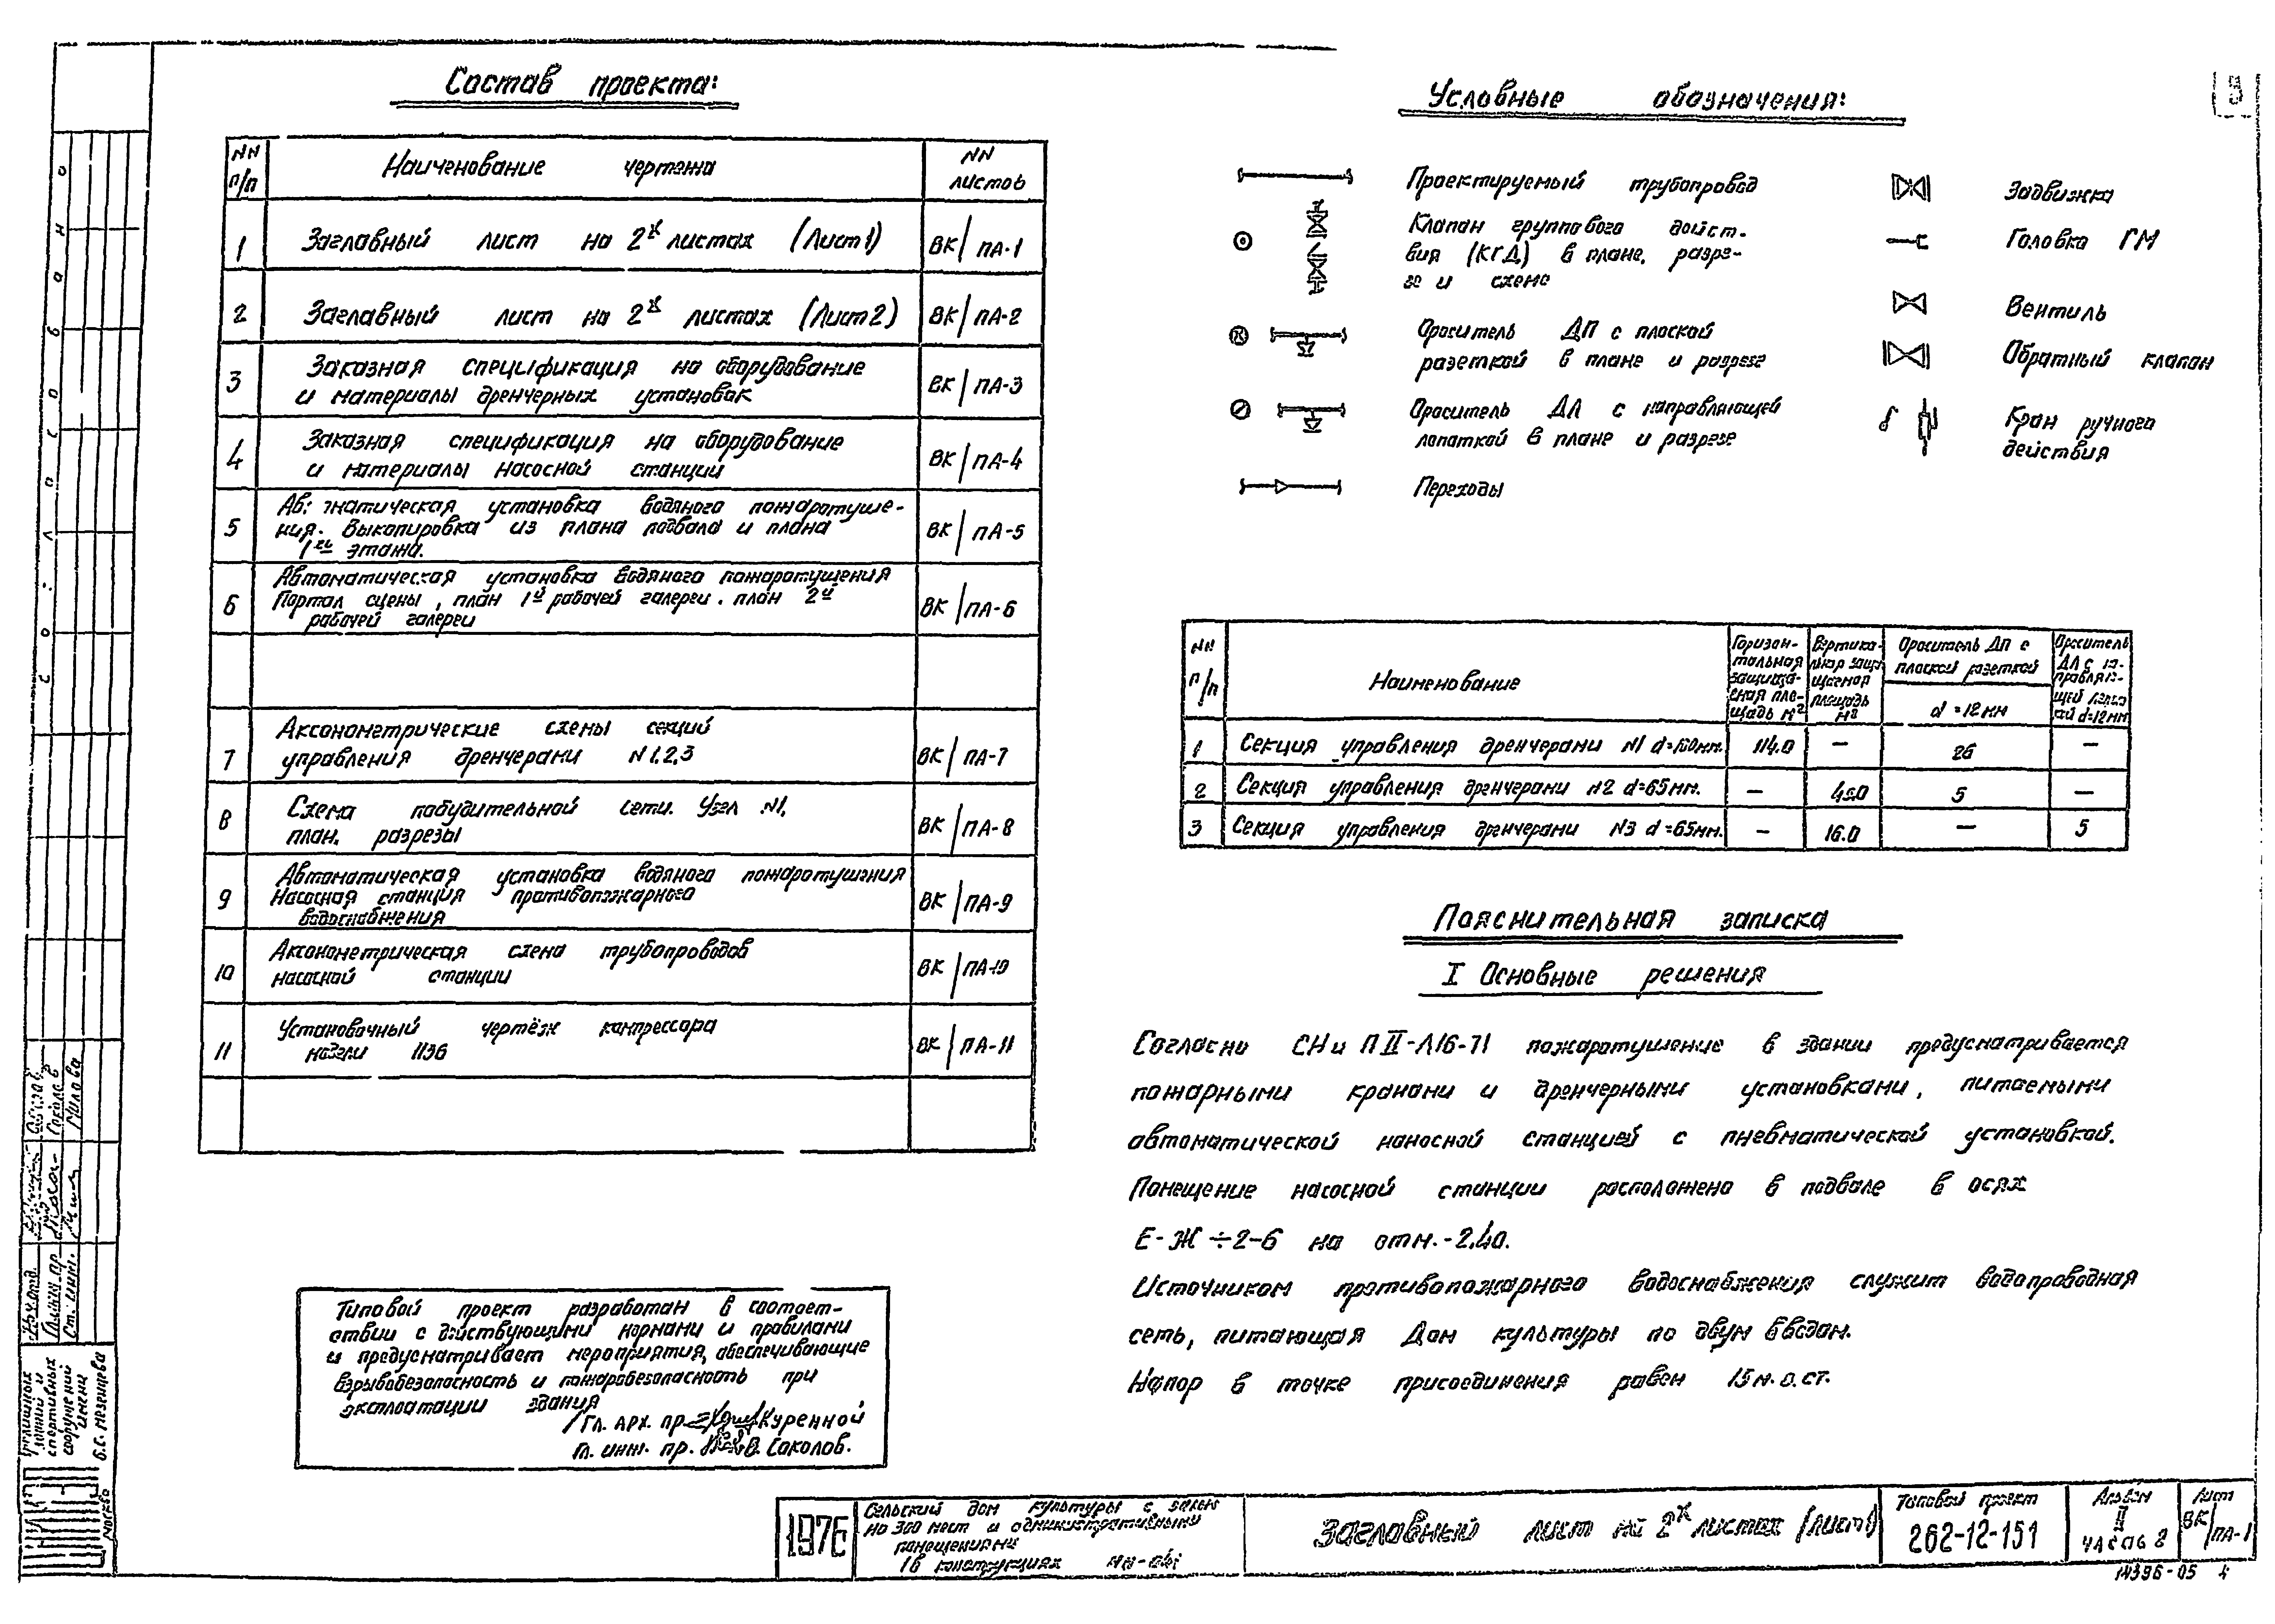 Состав проекта:
NN п/п
Наименование чертежа
NN листов
1 Заглавный лист на 2х листах (Лист 1) ВК/ПА-1
2 Заглавный лист на 2х листах (Лист 2) ВК/ПА-2
3 Заказная спецификация на оборудование
и материалы дренчерных установок ВК/ПА-3
4 Заказная спецификация на оборудование
и материалы насосной станции ВК/ПА-4
5 установка водяного пожаротуше-
ния. Выкопировка из плана подвала и плана
1го этажа. ВК/ПА-5
6 Автоматическая установка водяного пожаротушения
Портал сцены, план 1й рабочей галереи. план 2й
рабочей галереи ВК/ПА-6
7 Аксонометрические схемы секций
управления дренчерами N 1,2,3 ВК/ПА-7
8 Схема побудительной сети. Узел N1,
план, разрезы ВК/ПА-8
9 Автоматическая установка водяного пожаротушения
Насосная станция противопожарного
водоснабжения ВК/ПА-9
10 Аксонометрическая схема трубопроводов
насосной станции ВК/ПА-10
11 Установочный чертёж компрессора
модели 1136 ВК/ПА-11
Типовой проект разработан в соответ-
ствии с действующими нормами и правилами
и предусматривает мероприятия, обеспечивающие
взрывобезопасность и пожаробезопасность при
эксплоатации здания
Гл. арх. пр. Куренной
Гл. инж. пр. В. Соколов.
Условные обозначения:
Проектируемый трубопровод
Клапан группового дейст-
вия (КГД) в плане, разре-
зе и схеме
Ороситель ДП с плоской
розеткой в плане и разрезе
Ороситель ДЛ с направляющей
лопаткой в плане и разрезе
Переходы
Задвижка
Головка ГМ
Вентиль
Обратный клапан
Кран ручного
действия
NN п/п
Наименование
Горизон-
тальная
защища-
емая пло-
щадь м²
Вертика-
льная защи-
щаемая
площадь
м²
Ороситель ДП с
плоской розеткой
d=12мм
Ороситель
ДЛ с на-
правляю-
щей лопат
ой d=12мм
1 Секция управления дренчерами N1 d= мм. 114.0 — 26 —
2 Секция управления дренчерами N2 d=65мм. — 45.0 5 —
3 Секция управления дренчерами N3 d=65мм. — 16.0 — 5
Пояснительная записка
I Основные решения
Согласно СНиП II-Л16-71 пожаротушение в здании предусматривается
пожарными кранами и дренчерными установками, питаемыми
автоматической наносной станцией с пневматической установкой.
Помещение насосной станции расположено в подвале в осях
Е-Ж÷2-6 на отм.-2.40.
Источником противопожарного водоснабжения служит водопроводная
сеть, питающая Дом культуры по двум вводам.
Напор в точке присоединения равен 15м.в.ст.
1976
Сельский дом культуры с залом
на 300 мест и административными
помещениями
/в конструкциях
Заглавный лист на 2х листах (лист 1)
Типовой проект
262-12-151
Альбом
II
часть 2
Лист
ВК/ПА-1
14396-05 4
Согласовано
Гл. инж. пр.
Ст. инж.
Соколов
Милова
зданий и
спортивных
сооружений
имени
Б.С. Мезенцева
Москва